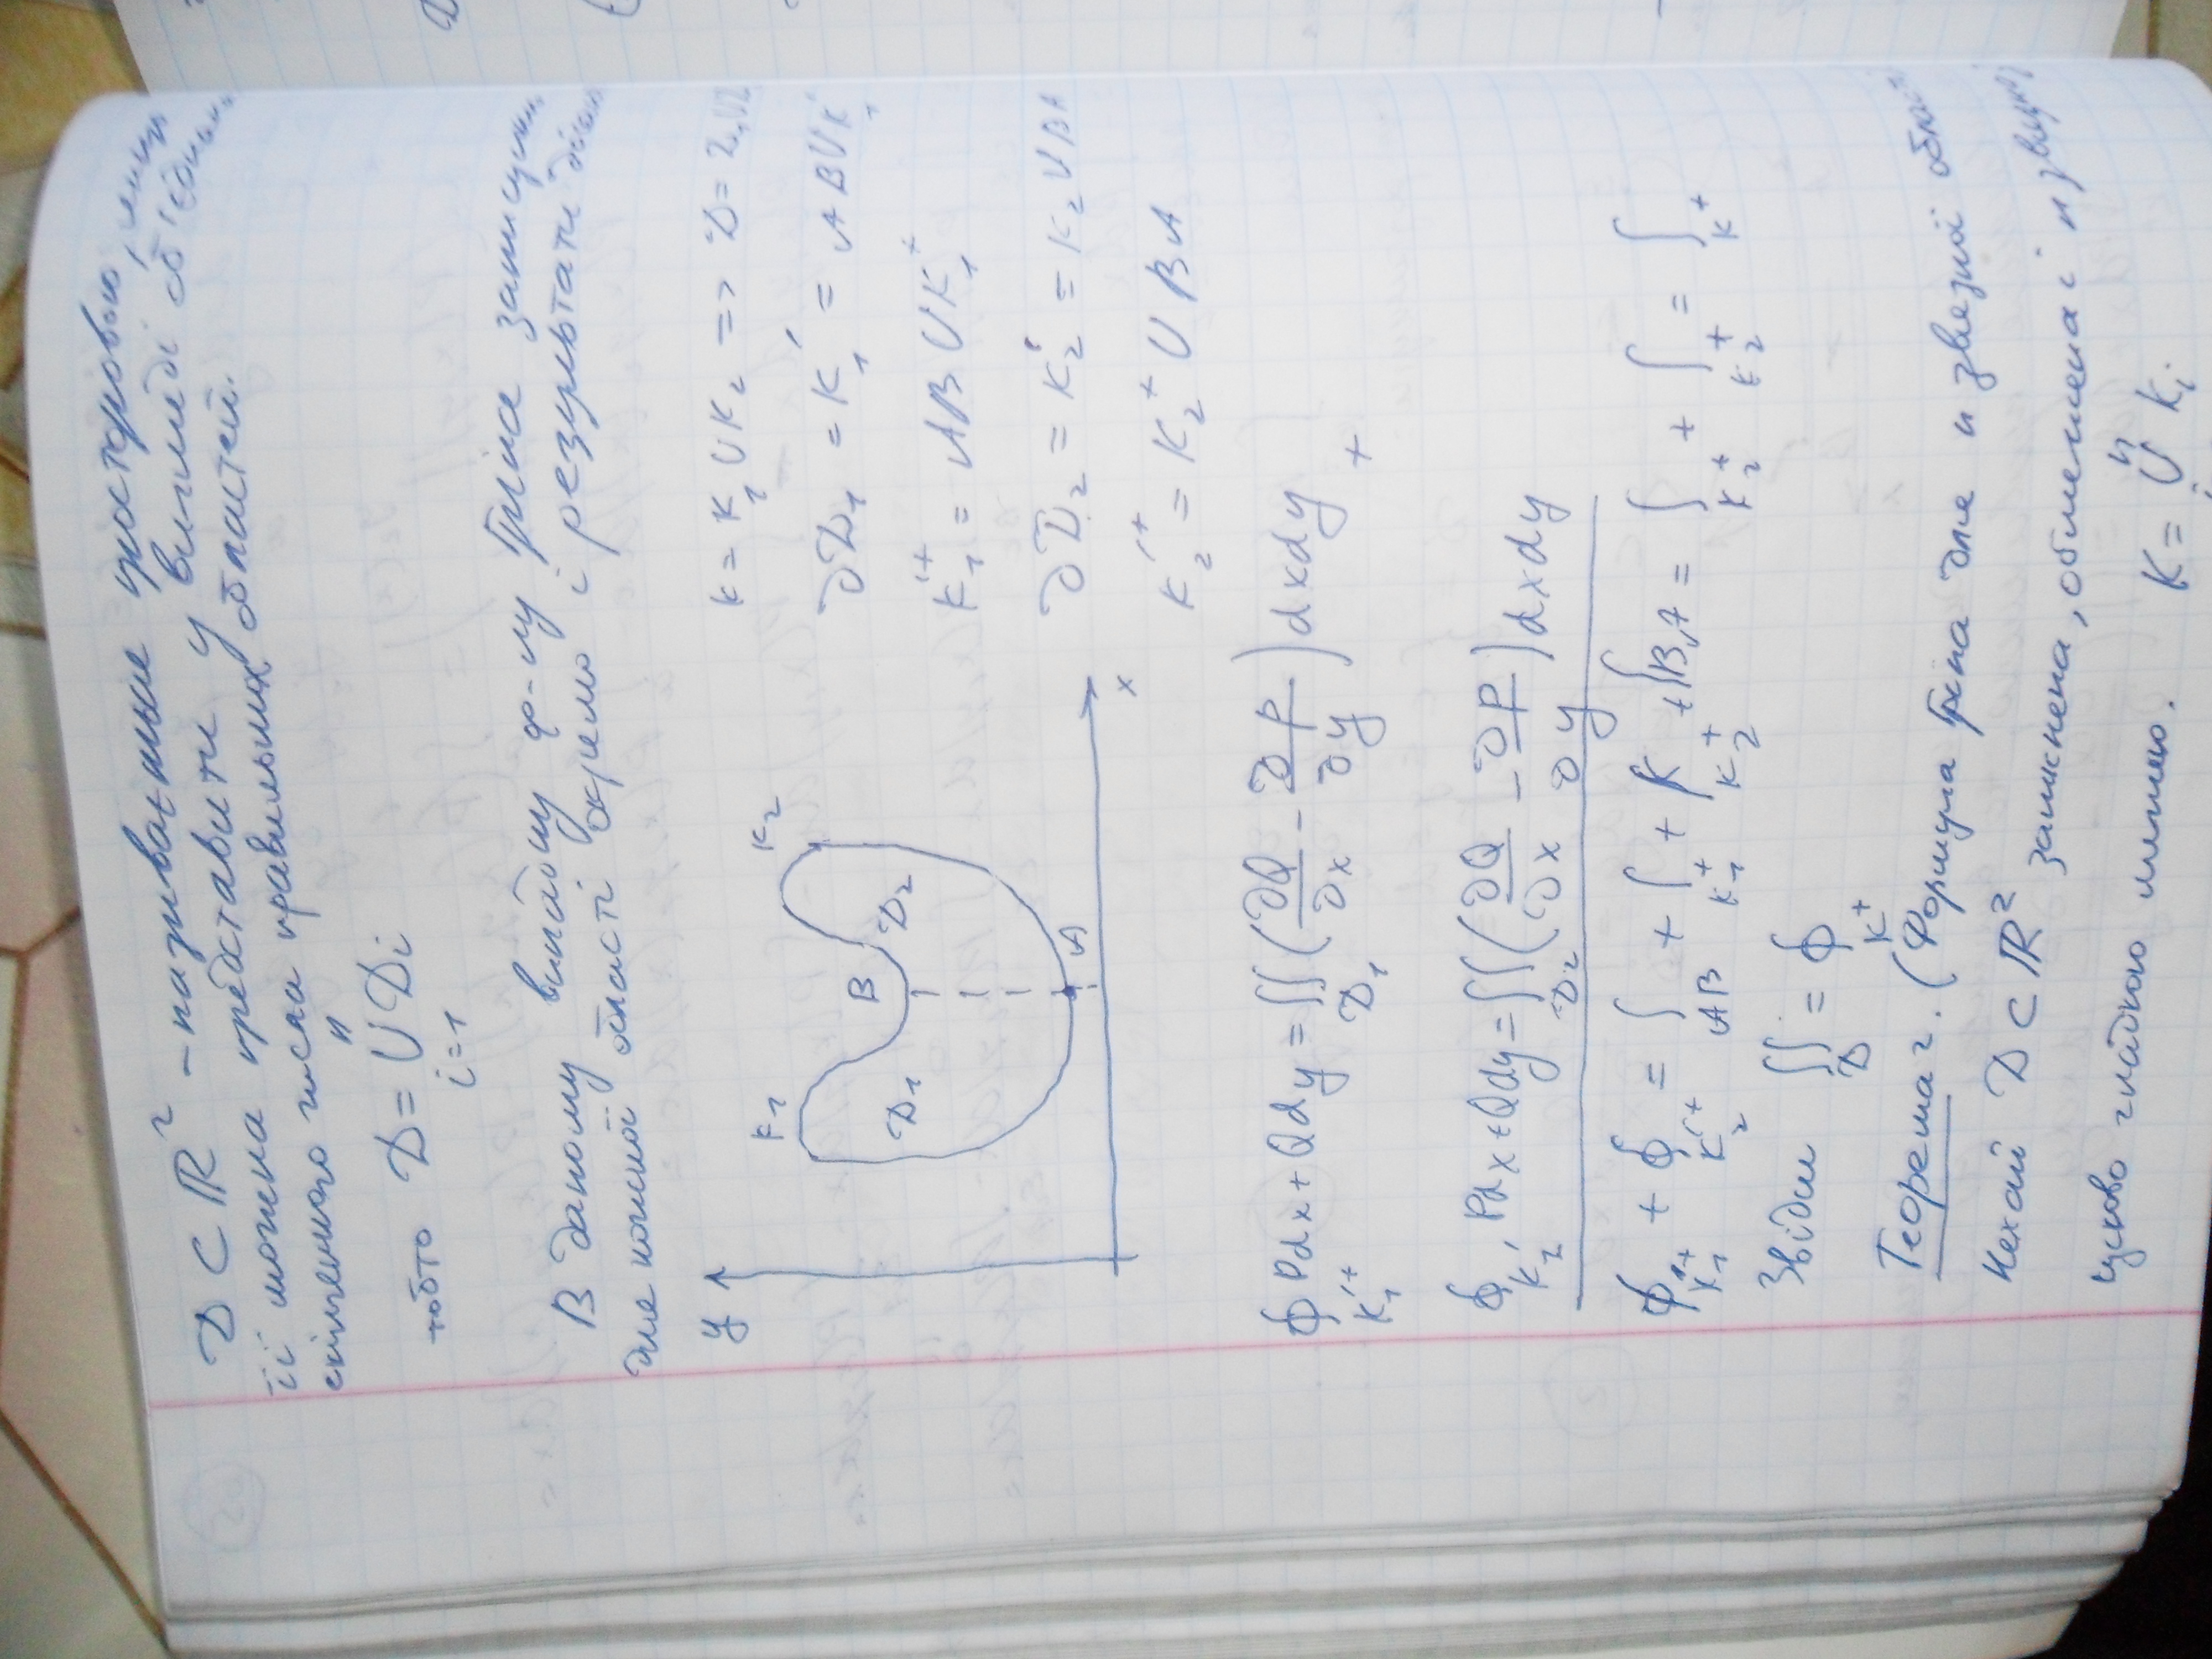 D ⊂ R² - називається простровою, якщо
її можна представити у вигляді об'єднання
скінченного числа правильних областей.
тобто D = ⋃ⁿᵢ₌₁ Dᵢ
В даному випадку ф-лу Гріна записуєм
для кожної області окремо і результати
y
K₁
K₂
D₁
B
D₂
A
x
K = K₁ ∪ K₂ =>
∂D₁ = K₁' = AB ∪ K₁
K₁'⁺ = AB ∪ K₁⁺
∂D₂ = K₂' = K₂ ∪ BA
K₂'⁺ = K₂⁺ ∪ BA
∮_{K₁'⁺} Pdx + Qdy = ∬_{D₁} (∂Q/∂x - ∂P/∂y) dxdy +
∮_{K₂'} Pdx + Qdy = ∬_{D₂} (∂Q/∂x - ∂P/∂y) dxdy
∮_{K₁'⁺} + ∮_{K₂'⁺} = ∫_{AB} + ∫_{K₁⁺} + ∫_{K₂⁺} + ∫_{BA} = ∫_{K₂⁺} + ∫_{K₂⁺} = ∫_{K⁺}
Звідки ∬_D = ∮_{K⁺}
Теорема 2. (Формула Гріна для n звязної області
Нехай D ⊂ R² замкнена, обмежена і n звязна
кусково гладкою лінією. K = ⋃ⁿᵢ Kᵢ